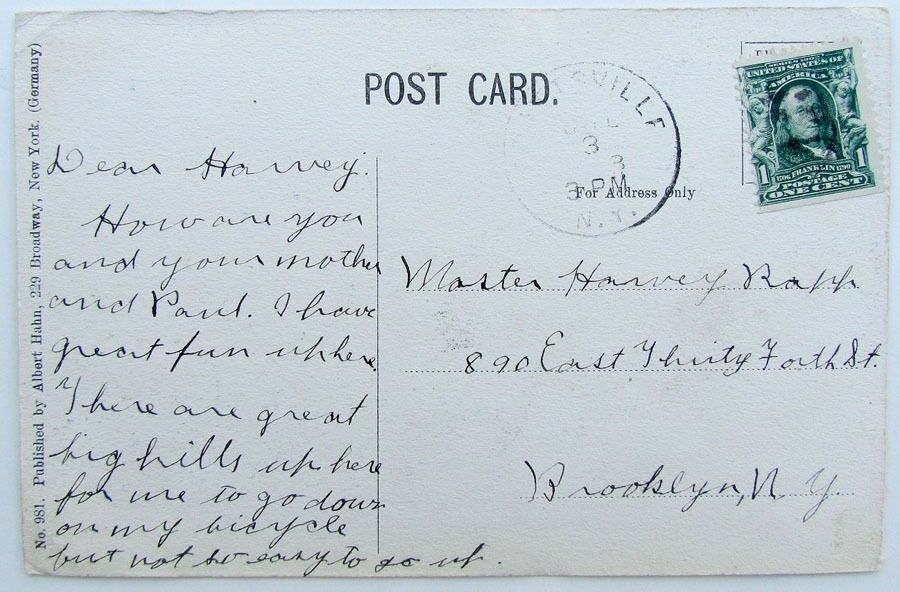 POST CARD.
No. 981. Published by Albert Hahn, 229 Broadway, New York. (Germany)
Dear Harvey.
How are you
and your mother
and Paul. I have
great fun up here
There are great
big hills up here
for me to go down
on my bicycle
but not so easy to go up.
SVILLE
3
3 PM
N.Y.
SERIES 1902
UNITED STATES OF
AMERICA
1706 FRANKLIN 1790
1 POSTAGE 1
ONE CENT
For Address Only
Master Harvey Rapp
890 East Thirty Forth St.
Brooklyn, N. Y.